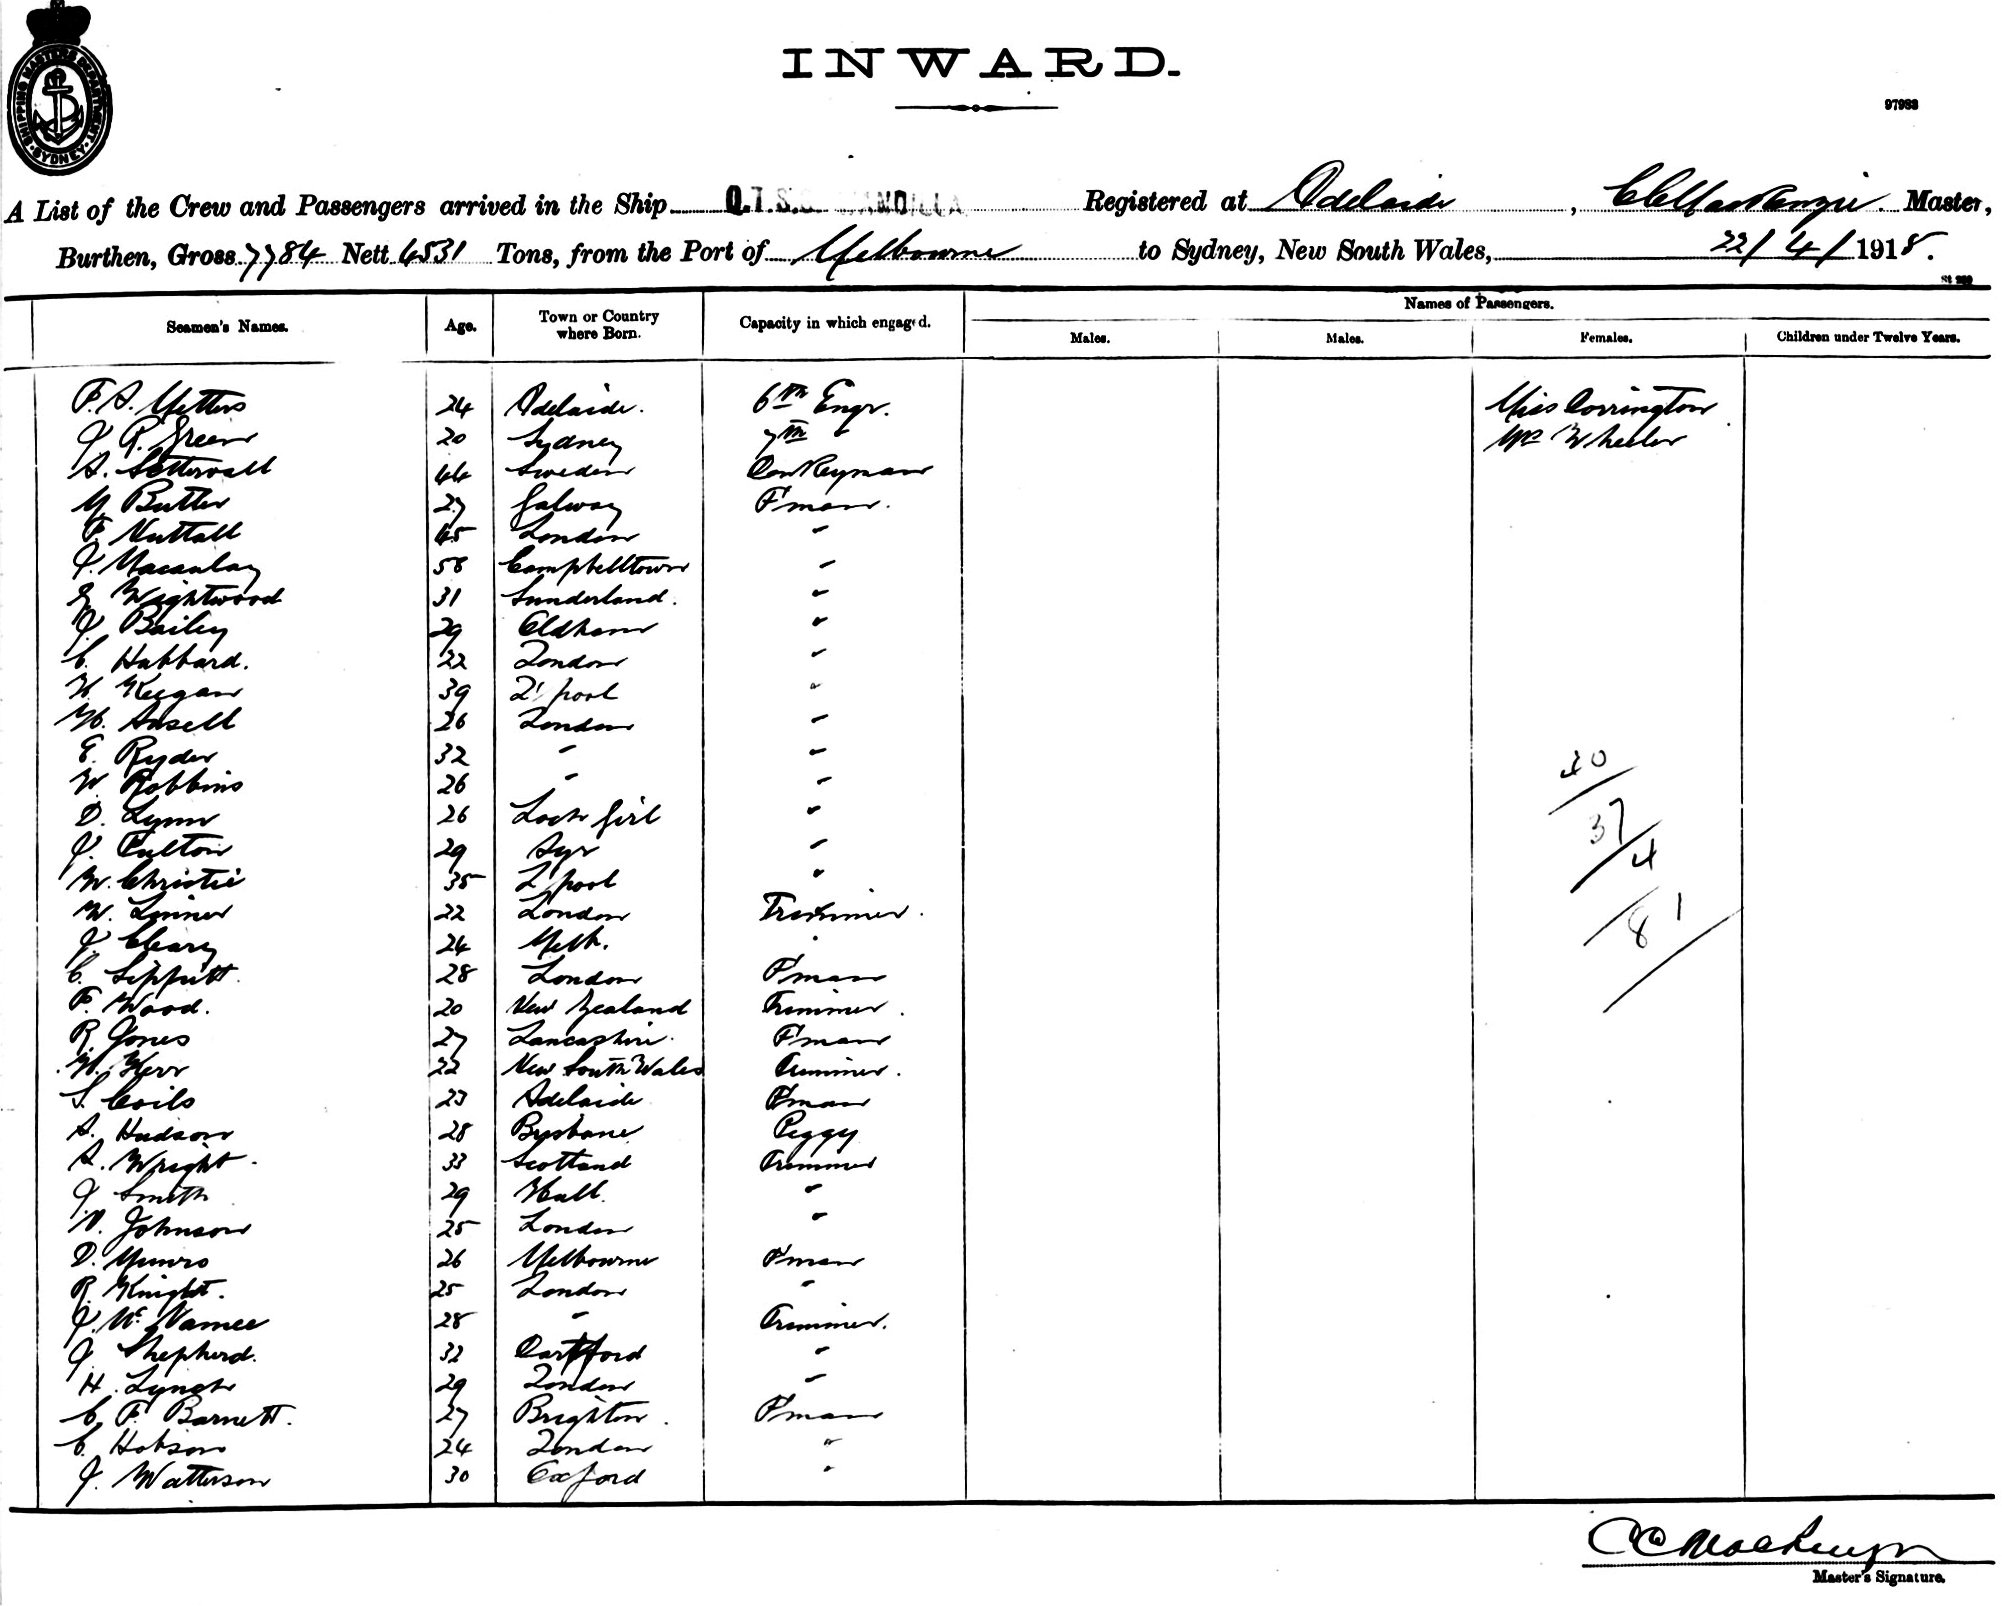 SHIPPING MASTERS DEPARTMENT
SYDNEY
INWARD.
97983
A List of the Crew and Passengers arrived in the Ship Q.T.S.S. Registered at Adelaide, C C MacKenzie. Master,
Burthen, Gross 7784 Nett 4531 Tons, from the Port of Melbourne to Sydney, New South Wales, 22/4/1918.
Names of Passengers.
Seamen's Names. Age. Town or Country where Born. Capacity in which engaged. Males. Males. Females. Children under Twelve Years.
F. A. Metters 24 Adelaide. 6th Engr. Miss Corrington
J R. Green 20 Sydney 7th " Mrs Wheeler
A. Settervall 44 Sweden Donkeyman
M Butler 27 Galway F'man.
F. Nuttall 45 London "
J. Macaulay 58 Campbelltown "
Wightwood 31 Sunderland. "
J. Bailey 29 Oldham "
C. Hubbard. 22 London "
W Keegan 39 L'pool "
W. Ansell 26 London "
E. Ryder 32 " "
W. Robbins 26 " "
D. Lynn 26 Loch Girl "
J. Fulton 29 Ayr "
W. Christie 35 L'pool "
W. Linner 22 London Trimmer.
J. Cleary 24 Melb. "
C. Sippitt. 28 London F'man
F. Wood. 20 New Zealand Trimmer.
R. Jones 27 Lancashire. F'man
W. Kerr 22 New South Wales Trimmer.
S. Coils 23 Adelaide F'man
A. Hudson 28 Brysbane Peggy
A. Wright. 33 Scotland Trimmer
J. Smith 29 Hull. "
Johnson 25 London "
D. Munro 26 Melbourne F'man
R. Knight. 25 London "
J. McNamee 28 " Trimmer.
J. Shepherd. 32 Dartford "
H. Lynch 29 London "
C. F. Barnett. 27 Brighton. F'man
C. Hobson 24 London "
J. Watterson 30 Oxford "
40
37
4
81
C C MacKenzie
Master's Signature.